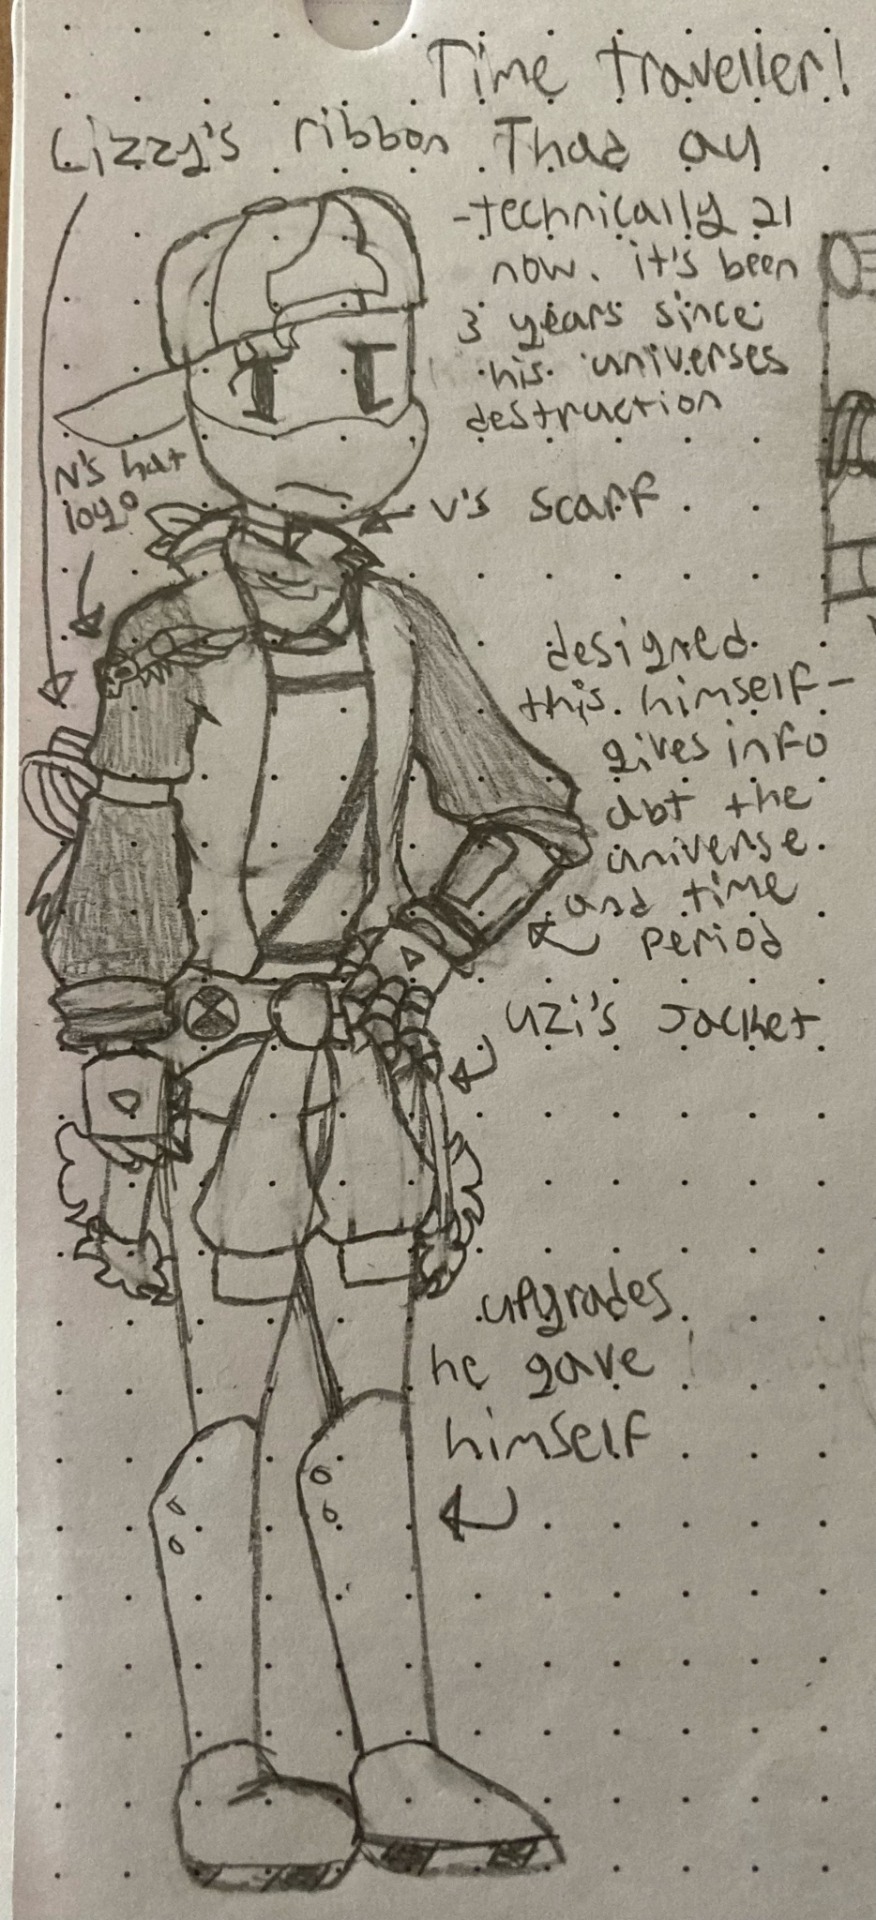 Time traveller!
Thad au
Lizzy's ribbon
-technically 21
now. it's been
3 years since
his universes
destruction
N's hat
logo
V's scarf
designed
this himself-
gives info
abt the
universe
and time
period
Uzi's Jacket
upgrades
he gave
himself